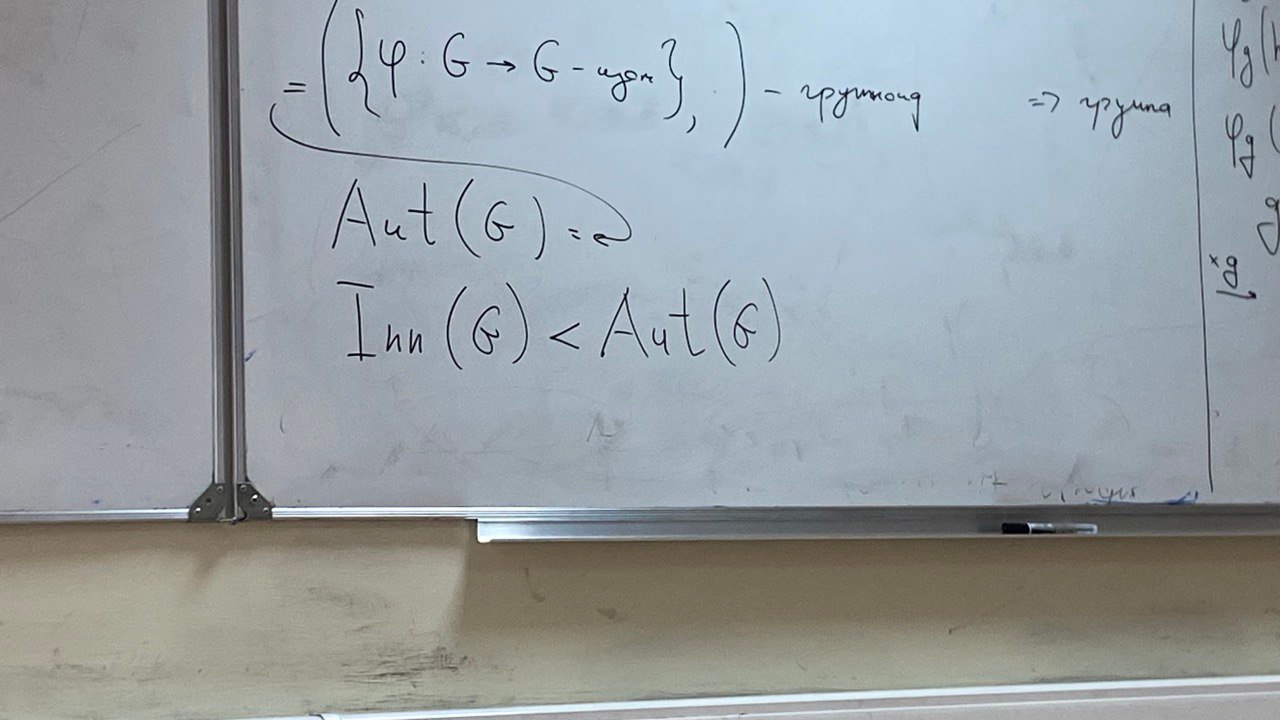 = ({φ : G → G - изом}, ·) - группоид ⇒ группа
Aut(G) =
Inn(G) < Aut(G)
φg(h
φg(
g